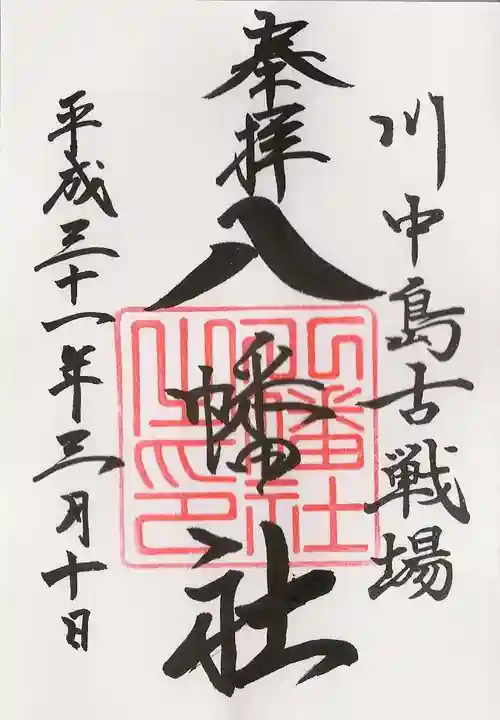 川中島古戦場
奉拝
八幡社
八幡社之印
平成三十一年三月十日